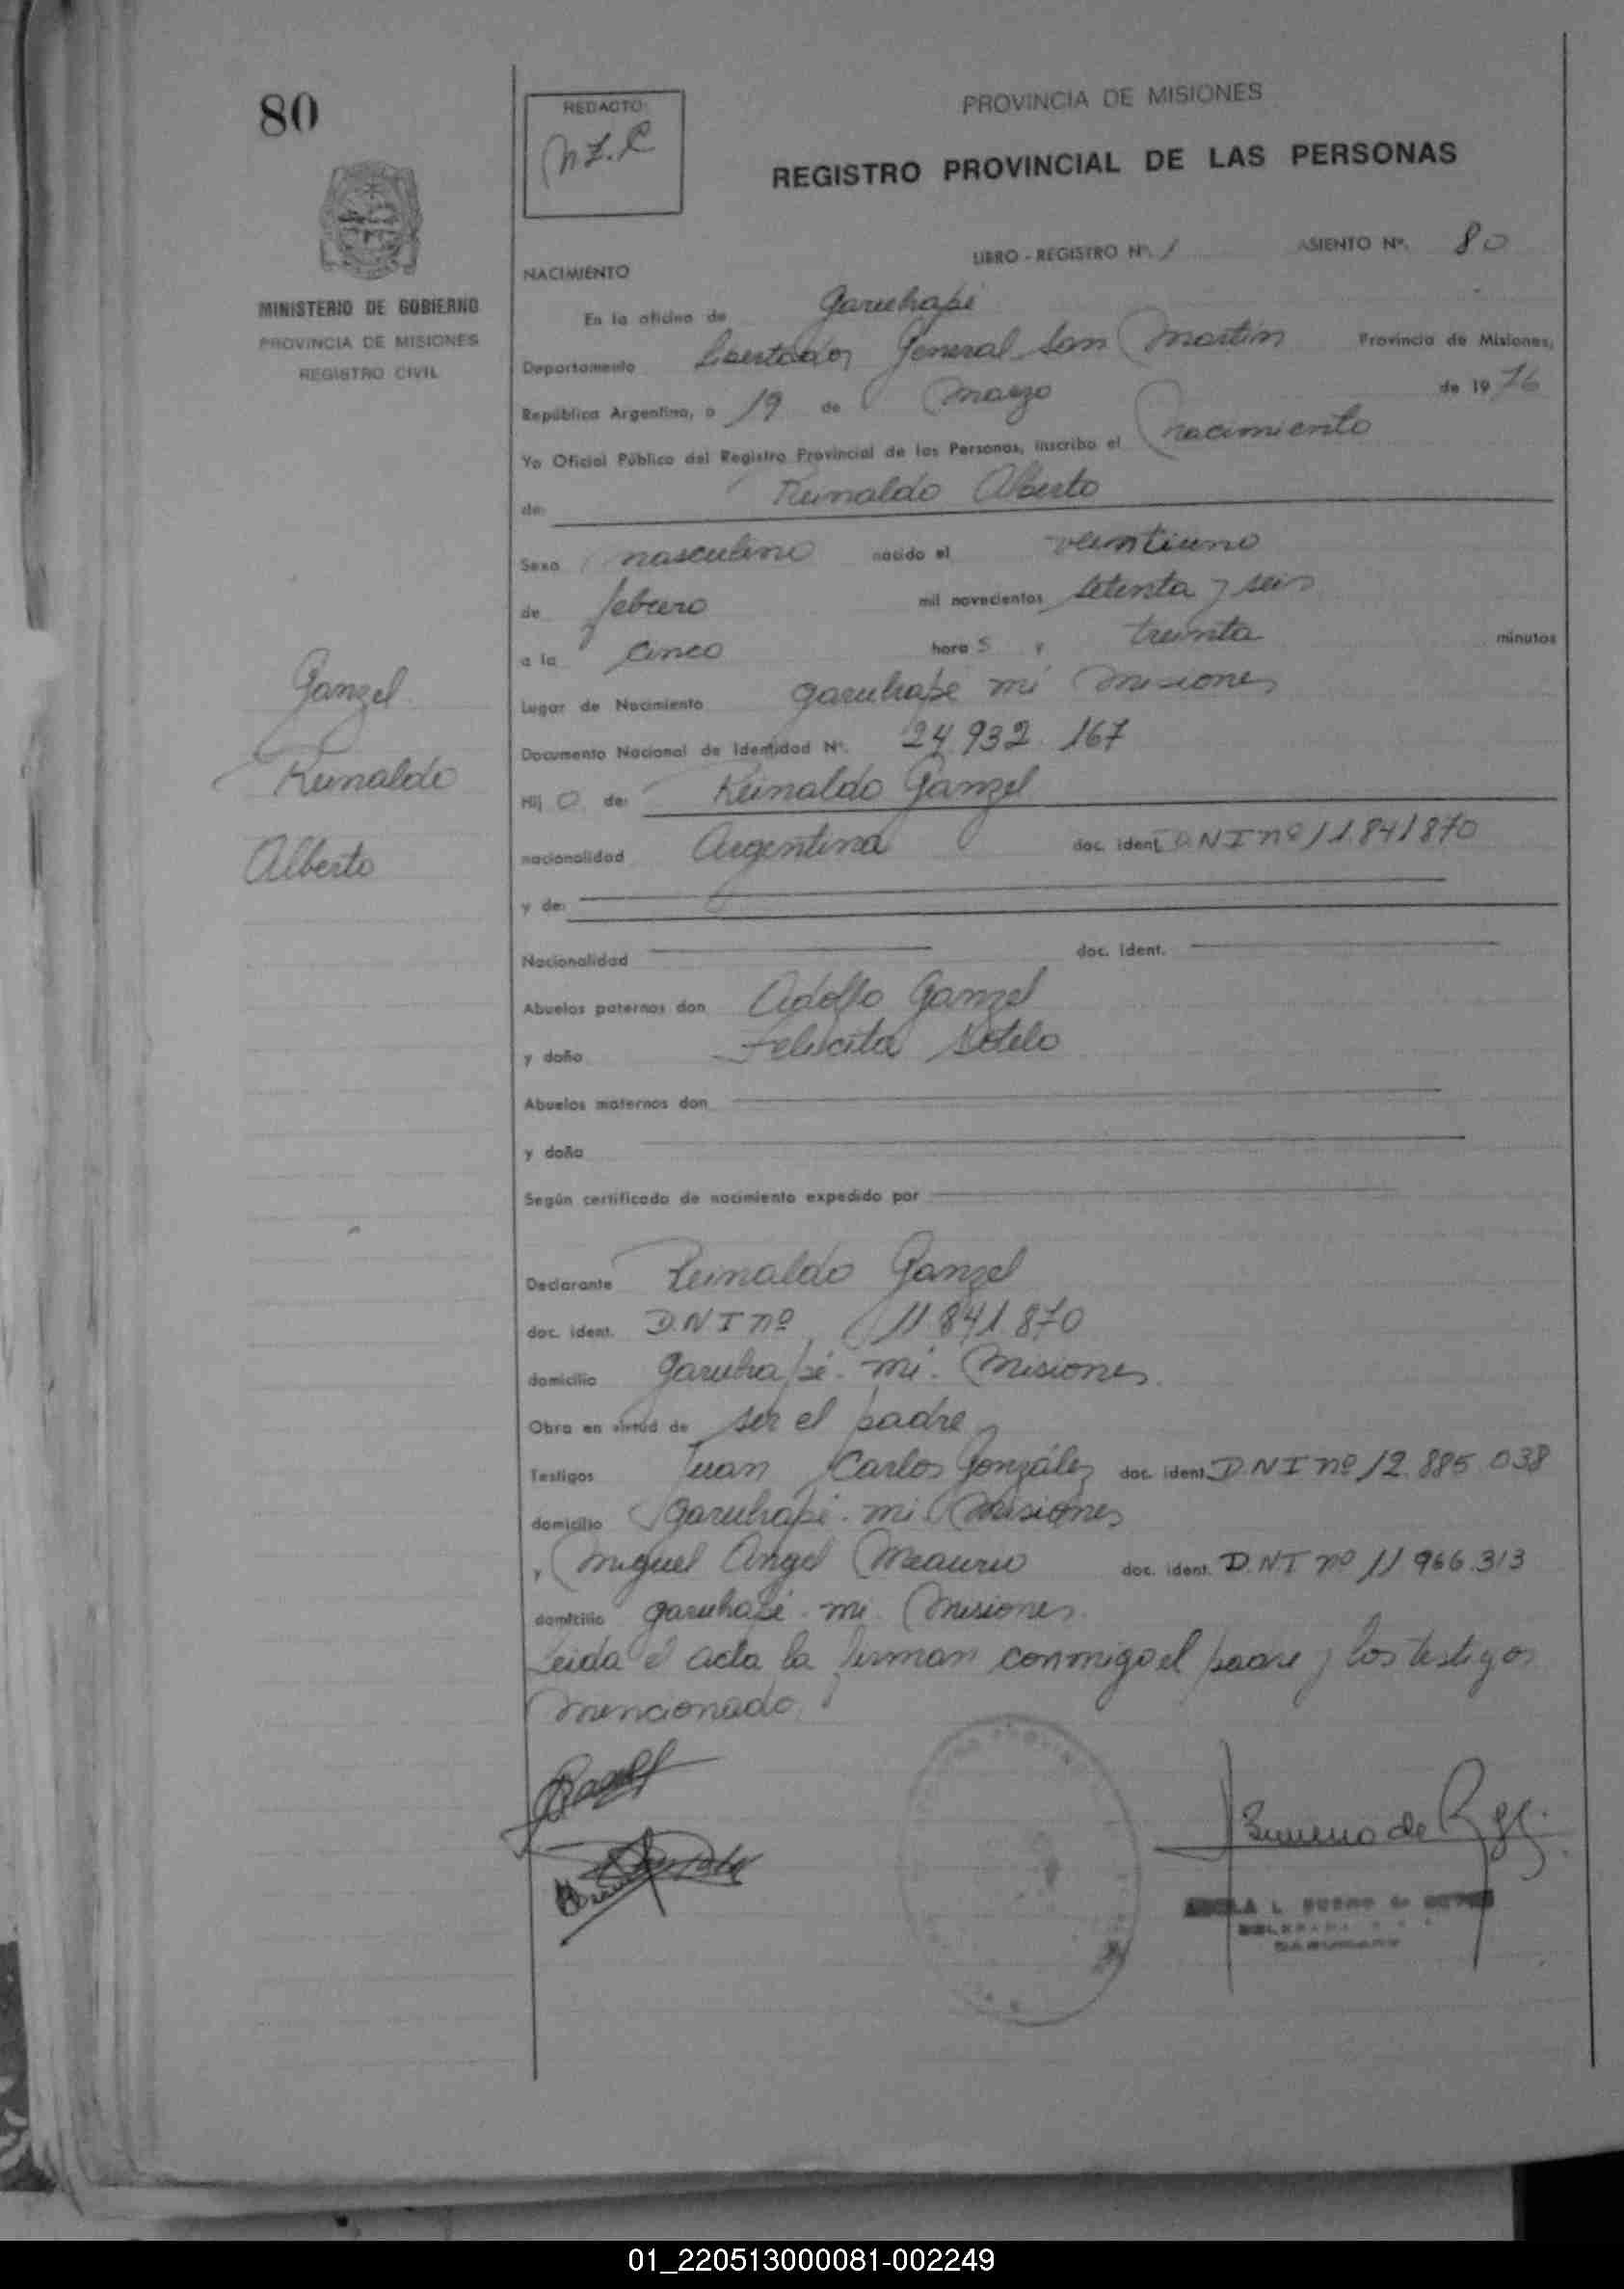 80
REDACTO:
PROVINCIA DE MISIONES
REGISTRO PROVINCIAL DE LAS PERSONAS
MINISTERIO DE GOBIERNO
PROVINCIA DE MISIONES
REGISTRO CIVIL
LIBRO - REGISTRO Nº. 1 ASIENTO Nº. 80
NACIMIENTO
En la oficina de Garuhapé
Departamento Libertador General San Martín Provincia de Misiones,
República Argentina, a 19 de Marzo de 1976
Yo Oficial Público del Registro Provincial de las Personas, inscribo el nacimiento
de: Reinaldo Alberto
Sexo masculino nacido el veintiuno
de febrero mil novecientos setenta y seis
a la cinco hora s y treinta minutos
Lugar de Nacimiento garuhapé mi Misiones
Documento Nacional de Identidad Nº. 24.932.167
Hij o de: Reinaldo Ganzel
nacionalidad Argentina doc. ident. D.N.I nº 11.841.870
y de:
Nacionalidad doc. ident.
Abuelos paternos don Adolfo Ganzel
y doña Felicita Sotelo
Abuelos maternos don
y doña
Según certificado de nacimiento expedido por
Ganzel
Reinaldo
Alberto
Declarante Reinaldo Ganzel
doc. ident. D.N.I nº 11.841.870
domicilio garuhapé - mi. Misiones.
Obra en virtud de ser el padre
Testigos Juan Carlos González doc. ident. D.N.I nº 12.885.038
domicilio garuhapé - mi Misiones
y Miguel Angel doc. ident. D.N.I nº 11.966.313
domicilio garuhapé - mi Misiones.
Leida el acta la firman conmigo el padre y los testigos
mencionado.
Bueno de
01_220513000081-002249